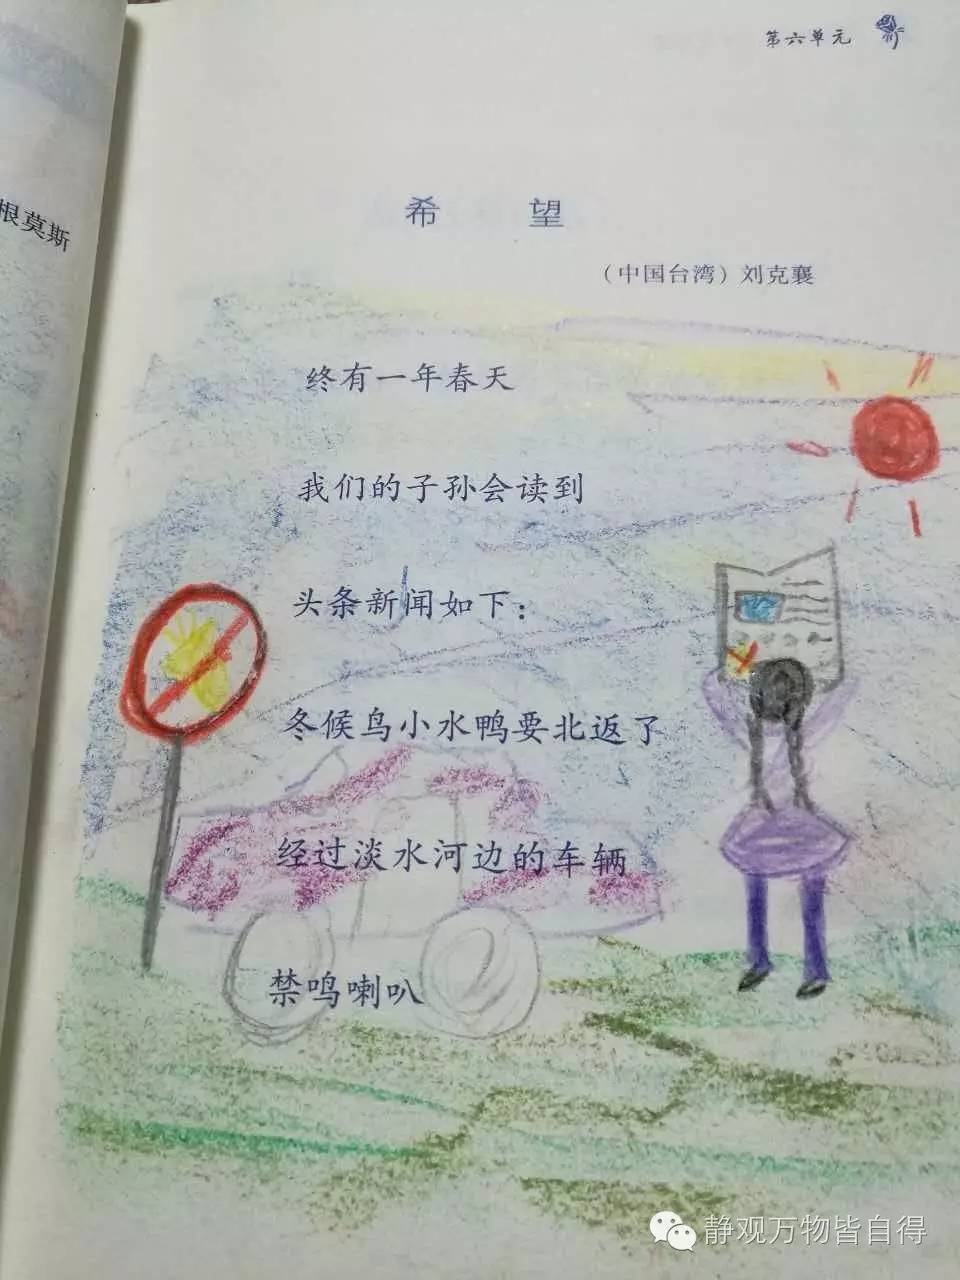 第六单元
根莫斯
希 望
（中国台湾）刘克襄
终有一年春天
我们的子孙会读到
头条新闻如下：
冬候鸟小水鸭要北返了
经过淡水河边的车辆
禁鸣喇叭
静观万物皆自得